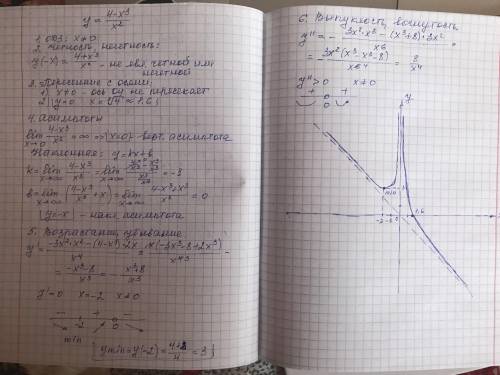 y = (4-x³)/x²
1. ООЗ: x≠0
2. Четность, нечетность:
y(-x) = (4+x³)/x² - не явл. четной или
нечетной
3. Пересечение с осями:
1) x≠0 - ось oy не пересекает
2) y=0 x=³√4 ≈ 1.6
4. Асимптоты
lim x→0 (4-x³)/x² = ∞ => x=0 - верт. асимптота
Наклонная: y=kx+b
k = lim x→∞ (4-x³)/x³ = lim x→∞
b = lim x→∞ ((4-x³)/x² + x) = lim x→∞ (4-x³+x³)/x² = 0
y=-x - накл. асимптота
5. Возрастание, убывание
y' = (-3x²·x² - (4-x³)·2x)/x⁴ =
= (-x³-8)/x³ = - (x³+8)/x³
y'=0 x=-2 x≠0
- + -
-2 0
min
ymin = y(-2) = = 3
6. Выпуклость, вогнутость
y'' = - (3x²·x³ - (x³+8)·3x²)/x⁶ =
= 8/x⁴
y''>0 x≠0
+ +
0
y
min
-2
1,6